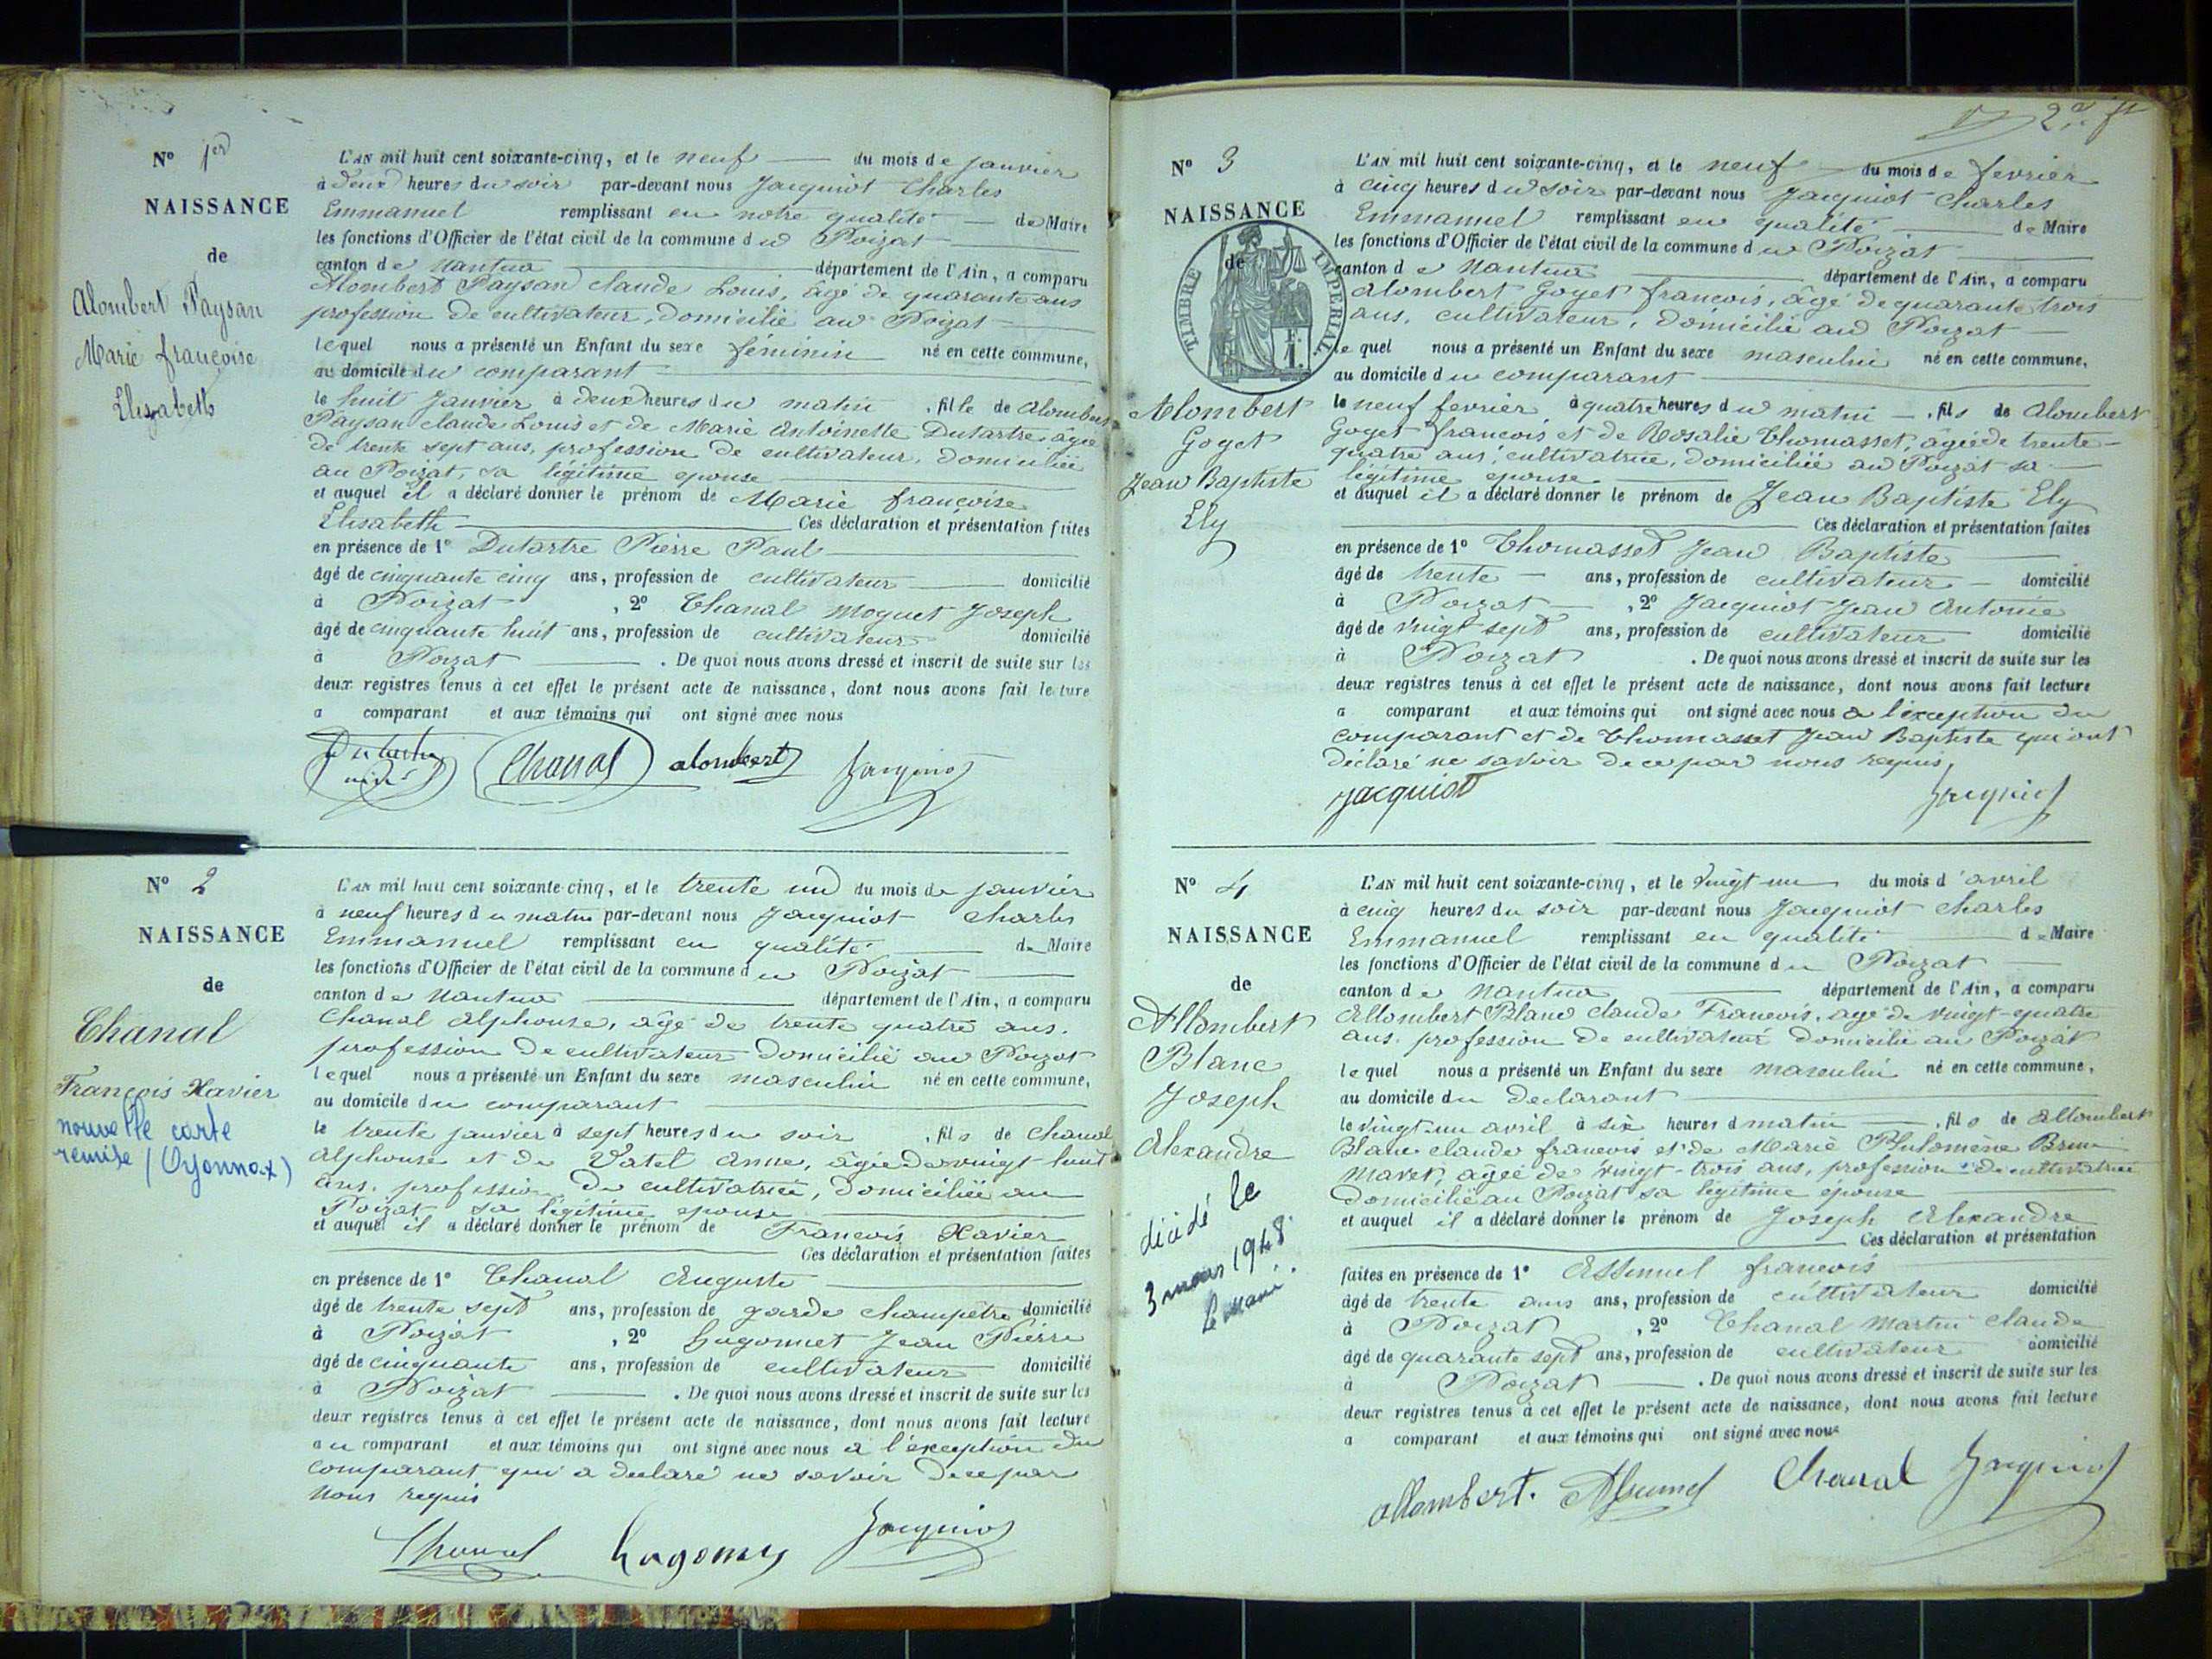 N° 1er
NAISSANCE
de
Alombert Paysan
Marie françoise
Elizabeth
L'AN mil huit cent soixante-cinq, et le neuf du mois de janvier
à deux heures du soir par-devant nous Jacquiot Charles
Emmanuel remplissant en notre qualité de Maire
les fonctions d'Officier de l'état civil de la commune du Poizat
canton de Nantua département de l'Ain, a comparu
Alombert Paysan claude Louis, âgé de quarante ans
profession de cultivateur, domicilié au Poizat
lequel nous a présenté un Enfant du sexe féminin né en cette commune,
au domicile du comparant
le huit Janvier à deux heures du matin, fille de Alombert
Paysan claude Louis et de Marie Antoinette Dutartre âgée
de trente sept ans, profession de cultivateur, domiciliée
au Poizat, sa légitime epouse
et auquel il a déclaré donner le prénom de Marie françoise
Elisabeth Ces déclaration et présentation faites
en présence de 1° Dutartre Pierre Paul
âgé de cinquante cinq ans, profession de cultivateur domicilié
à Poizat, 2° Chanal Moquet Joseph
âgé de cinquante huit ans, profession de cultivateur domicilié
à Poizat. De quoi nous avons dressé et inscrit de suite sur les
deux registres tenus à cet effet le présent acte de naissance, dont nous avons fait lecture
a comparant et aux témoins qui ont signé avec nous
Dutartre Chanal alombert Jacquiot
N° 2
NAISSANCE
de
Chanal
François Xavier
nouvelle carte
remise (Oyonnax)
L'AN mil huit cent soixante-cinq, et le trente un du mois de janvier
à neuf heures du matin par-devant nous Jacquiot Charles
Emmanuel remplissant en qualité de Maire
les fonctions d'Officier de l'état civil de la commune du Poizat
canton de Nantua département de l'Ain, a comparu
Chanal Alphonse, âgé de trente quatre ans.
profession de cultivateur domicilié au Poizat
lequel nous a présenté un Enfant du sexe masculin né en cette commune,
au domicile du comparant
le trente janvier à sept heures du soir, fils de Chanal
Alphonse et de Vatel Anne, âgée de vingt huit
ans, profession de cultivatrice, domiciliée au
Poizat sa légitime epouse
et auquel il a déclaré donner le prénom de François Xavier
Ces déclaration et présentation faites
en présence de 1° Chanal Auguste
âgé de trente sept ans, profession de garde champêtre domicilié
à Poizat, 2° Hugonnet Jean Pierre
âgé de cinquante ans, profession de cultivateur domicilié
à Poizat. De quoi nous avons dressé et inscrit de suite sur les
deux registres tenus à cet effet le présent acte de naissance, dont nous avons fait lecture
au comparant et aux témoins qui ont signé avec nous à l'exception du
comparant qui a declaré ne savoir de ce par
nous requis
Chanal hugonnet Jacquiot
2e ft
N° 3
NAISSANCE
de
TIMBRE IMPERIAL
Alombert
Goget
Jean Baptiste
Ely
L'AN mil huit cent soixante-cinq, et le neuf du mois de fevrier
à cinq heures du soir par-devant nous Jacquiot Charles
Emmanuel remplissant en qualité de Maire
les fonctions d'Officier de l'état civil de la commune du Poizat
canton de Nantua département de l'Ain, a comparu
Alombert Goget francois, âgé de quarante trois
ans, cultivateur, domicilié au Poizat
lequel nous a présenté un Enfant du sexe masculin né en cette commune,
au domicile du comparant
le neuf fevrier à quatre heures du matin, fils de Alombert
Goget francois et de Rosalie Thomasset, âgée de trente-
quatre ans, cultivatrice, domiciliée au Poizat sa
légitime epouse.
et auquel il a déclaré donner le prénom de Jean Baptiste Ely
Ces déclaration et présentation faites
en présence de 1° Thomasset Jean Baptiste
âgé de trente ans, profession de cultivateur domicilié
à Poizat, 2° Jacquiot Jean Antoine
âgé de vingt sept ans, profession de cultivateur domicilié
à Poizat. De quoi nous avons dressé et inscrit de suite sur les
deux registres tenus à cet effet le présent acte de naissance, dont nous avons fait lecture
a comparant et aux témoins qui ont signé avec nous à l'exception du
comparant et de Thomasset Jean Baptiste qui ont
déclaré ne savoir de ce par nous requis,
jacquiot Jacquiot
N° 4
NAISSANCE
de
Allombert
Blanc
Joseph
Alexandre
décédé le
3 mars 1948
Le Maire
L'AN mil huit cent soixante-cinq, et le vingt un du mois d'avril
à cinq heures du soir par-devant nous Jacquiot Charles
Emmanuel remplissant en qualité de Maire
les fonctions d'Officier de l'état civil de la commune du Poizat
canton de Nantua département de l'Ain, a comparu
Allombert Blanc Claude François, age de vingt-quatre
ans. profession de cultivateur domicilié au Poizat
lequel nous a présenté un Enfant du sexe masculin né en cette commune,
au domicile du declarant
le vingt-un avril à six heures d matin, fils de Allombert
Blanc claude francois et de Marie Philomène Brun
Maret, âgée de vingt-trois ans, profession de cultivatrice
domiciliée au Poizat sa légitime épouse
et auquel il a déclaré donner le prénom de Joseph Alexandre
Ces déclaration et présentation
faites en présence de 1° Assumel francois
âgé de trente ans ans, profession de cultivateur domicilié
à Poizat, 2° Chanal Martin Claude
âgé de quarante sept ans, profession de cultivateur domicilié
à Poizat. De quoi nous avons dressé et inscrit de suite sur les
deux registres tenus à cet effet le présent acte de naissance, dont nous avons fait lecture
a comparant et aux témoins qui ont signé avec nous
allombert. Assumel Chanal Jacquiot